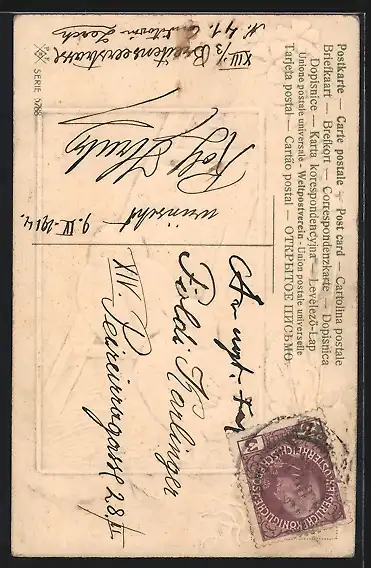 Postkarte — Carte postale — Post card — Cartolina postale
Briefkaart — Brefkort — Correspondenzkarte — Dopisnica
Dopisnice — Karta korespondencyjna — Levelező-Lap
Unione postale universale - Weltpostverein - Union postale universelle
Tarjeta postal — Cartão postal — ОТКРЫТОЕ ПИСЬМО
XIII/3 Breitenseerstrasse
N. 41.
9. IV. 1914.
wünscht
Poldi Karlinger
XIV.
28/II
SERIE 5788
KAISERLICHE KÖNIGLICHE ÖSTERREICHISCHE POST
3